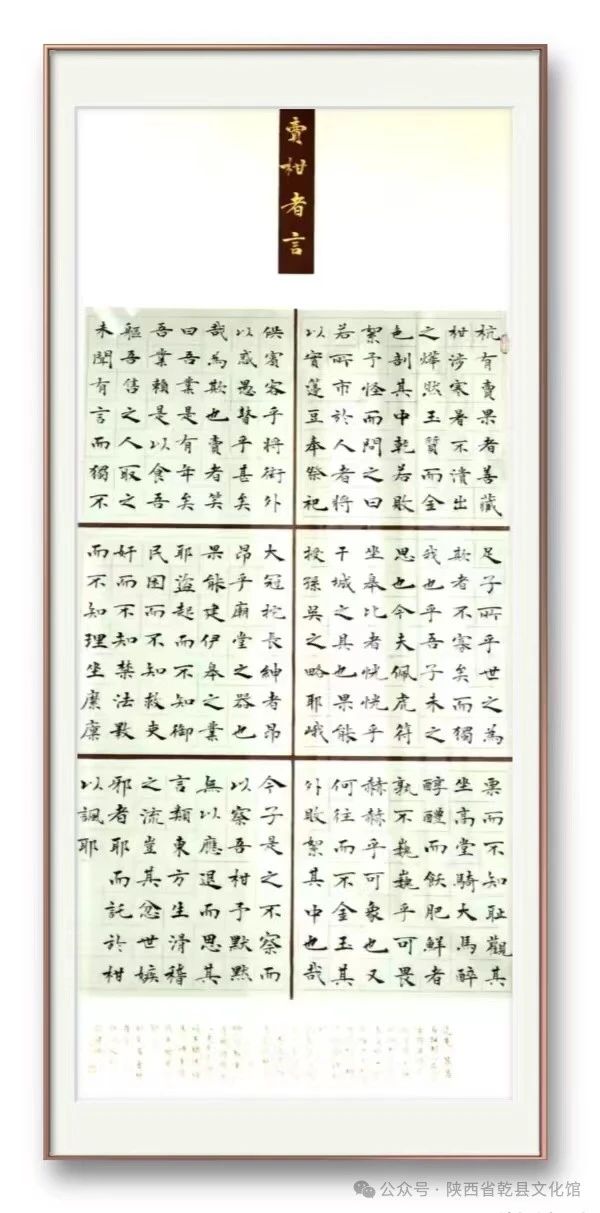 賣柑者言
杭有賣果者善藏
柑涉寒暑不潰出
之燁然玉質而金
色剖其中乾若敗
絮予怪而問之曰
若所市於人者將
以實籩豆奉祭祀
供賓客乎將衒外
以惑愚瞽乎甚矣
哉為欺也賣者笑
曰吾業是有年矣
吾業賴是以食吾
軀吾售之人取之
未聞有言而獨不
足子所乎世之為
欺者不寡矣而獨
我也乎吾子未之
思也今夫佩虎符
坐皋比者恍恍乎
干城之具也果能
授孫吳之略耶峨
大冠拕長紳者昂
昂乎廟堂之器也
果能建伊皋之業
耶盜起而不知御
民困而不知救吏
奸而不知禁法斁
而不知理坐糜廩
粟而不知耻觀其
坐高堂騎大馬醉
醇醴而飫肥鮮者
孰不巍巍乎可畏
赫赫乎可象也又
何往而不金玉其
外敗絮其中也哉
今子是之不察而
以察吾柑予默默
無以應退而思其
言類東方生滑稽
之流豈其忿世嫉
邪者耶而託於柑
以諷耶
公众号·陕西省乾县文化馆